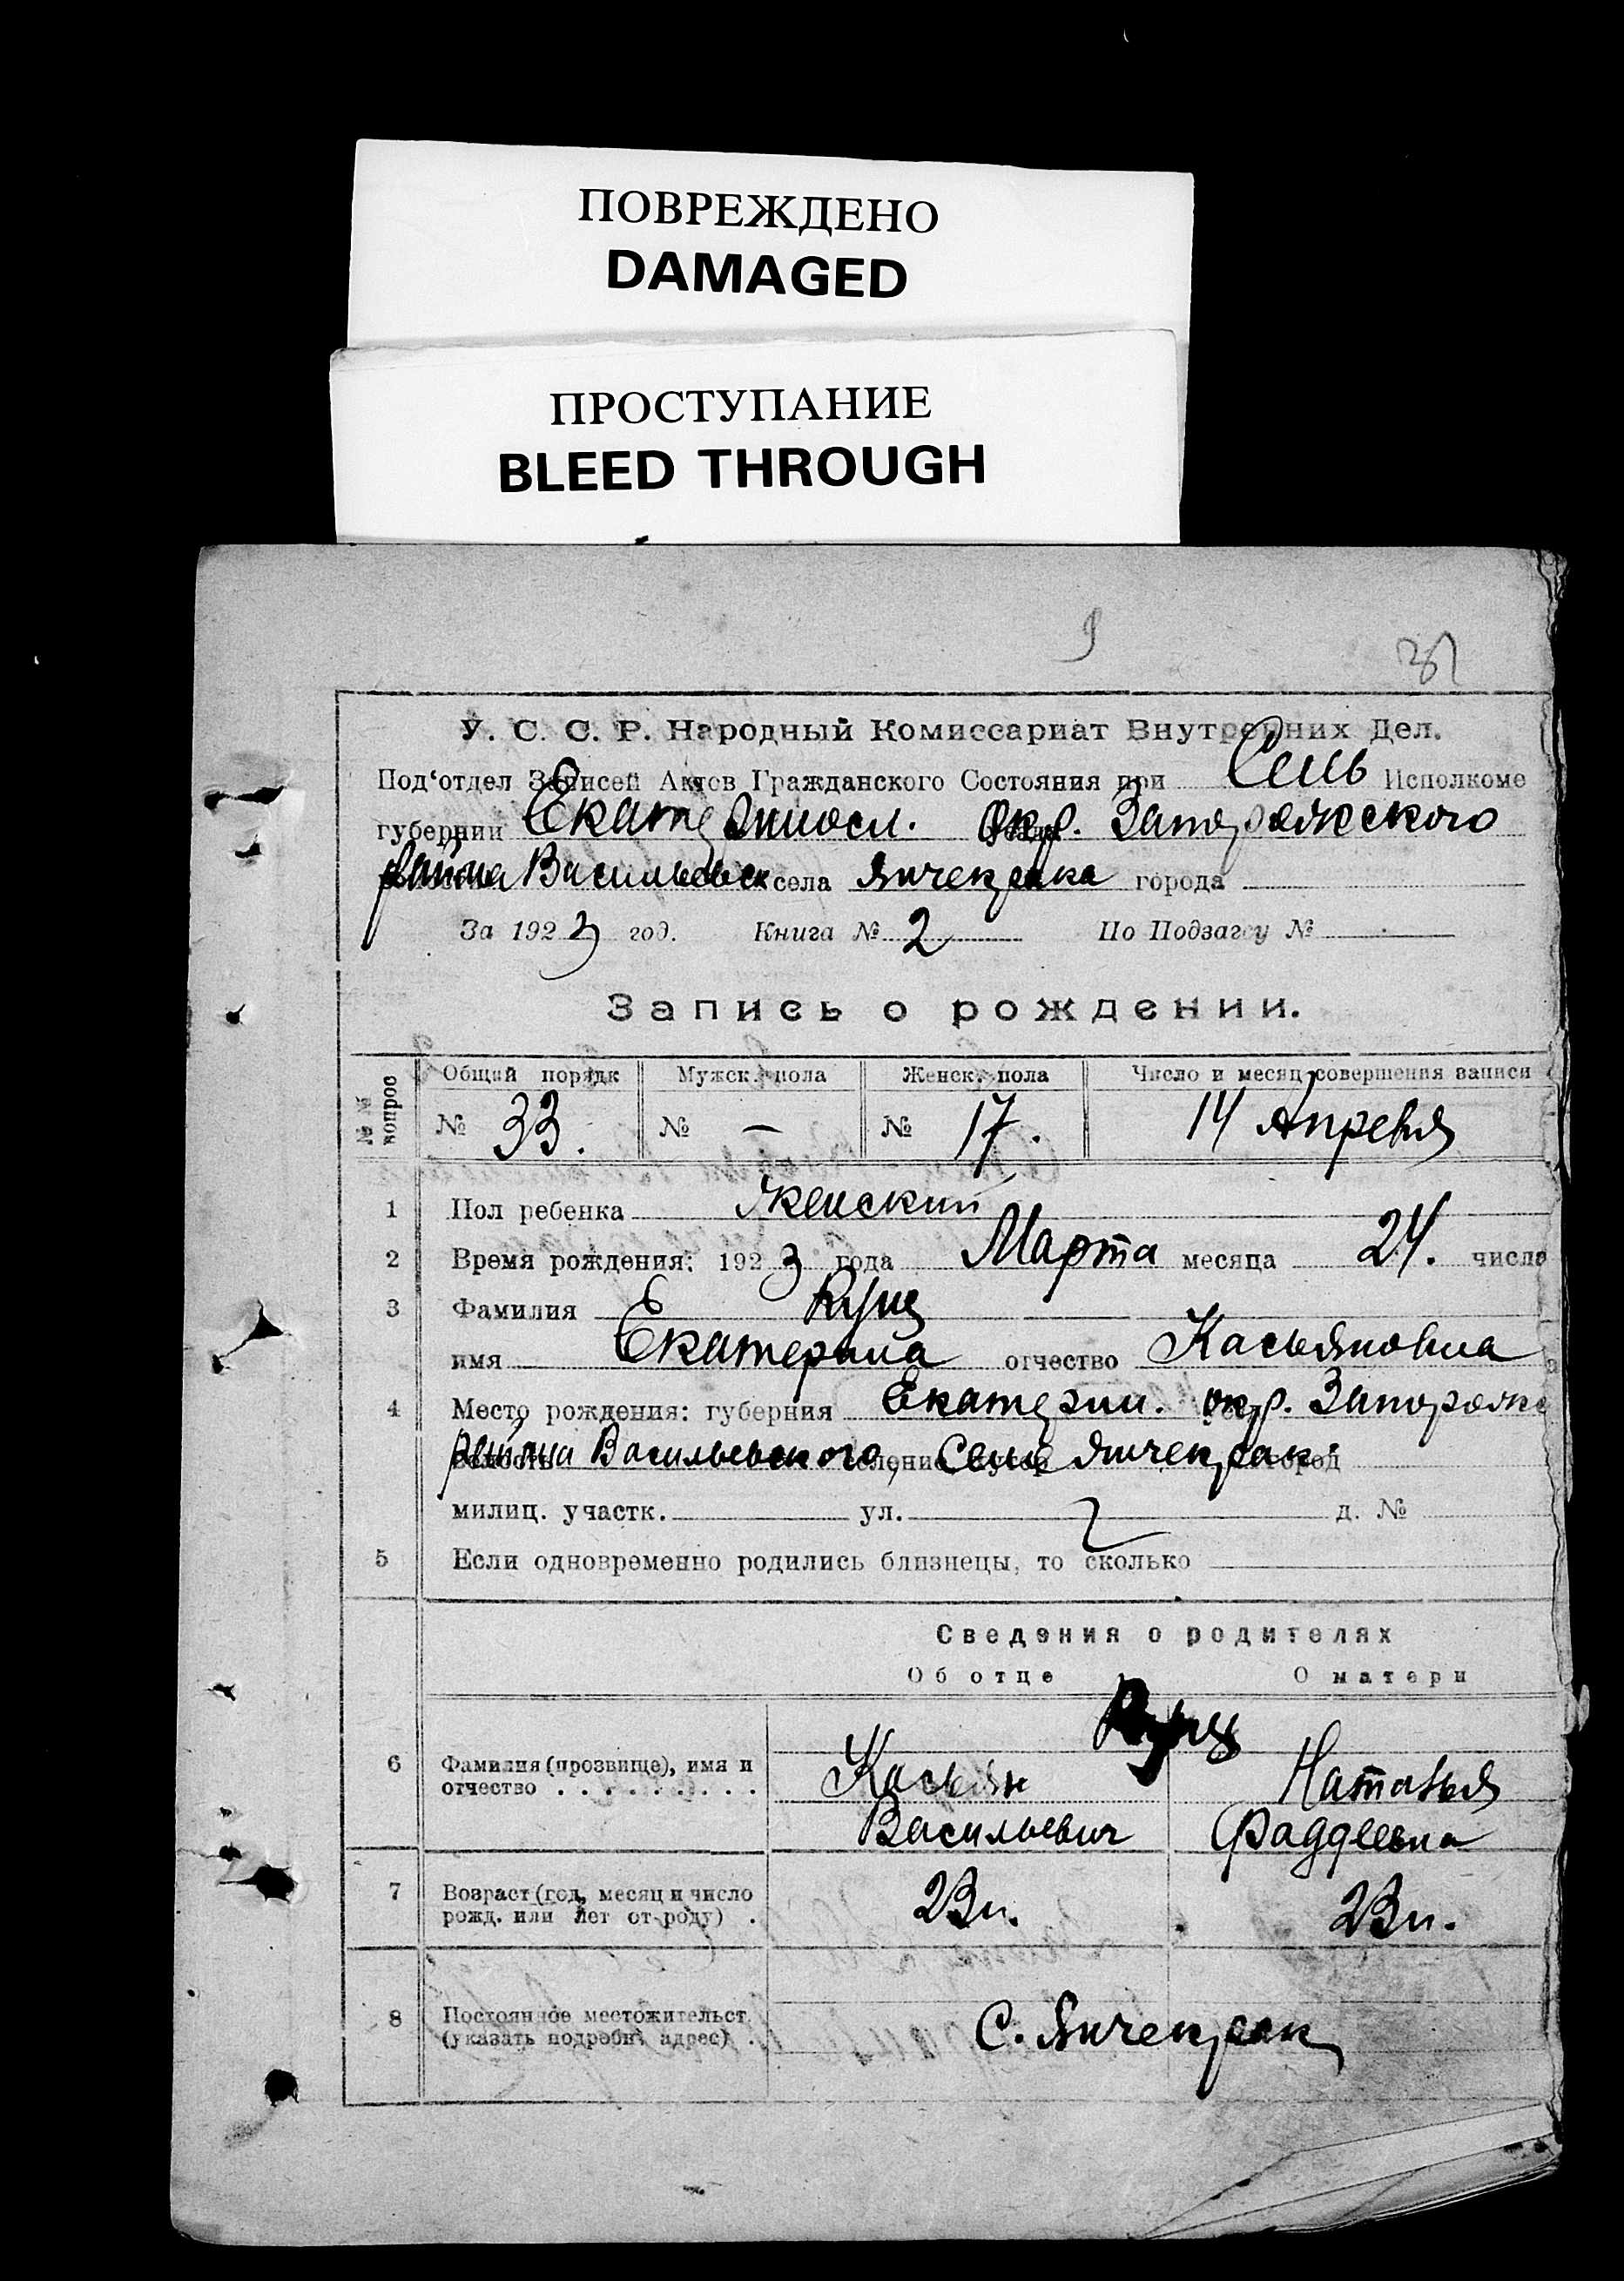 ПОВРЕЖДЕНО
DAMAGED
ПРОСТУПАНИЕ
BLEED THROUGH
9
У. С. С. Р. Народный Комиссариат Внутренних Дел.
Под'отдел Записей Актов Гражданского Состояния при Сель Исполкоме
губернии Екатериносл. Окр. Запорожского
района Васильевск села Янчекрака города
За 1923 год. Книга № 2 По Подзагсу №
Запись о рождении.
№№ вопрос
Общий порядк Мужск. пола Женск. пола Число и месяц совершения записи
№ 33. № — № 17. 14 Апреля
1 Пол ребенка Женский
2 Время рождения: 1923 года Марта месяца 24. числа
3 Фамилия Куц
имя Екатерина отчество Касьяновна
4 Место рождения: губерния Екатерин. окр. Запорож
района Васильевского, Село Янчекрак город
милиц. участк. ул. д. №
5 Если одновременно родились близнецы, то сколько
Сведения о родителях
Об отце О матери
Куц
6 Фамилия (прозвище), имя и Касьян Наталья
отчество . . . . . . . . . Васильевич Фаддеевна
7 Возраст (год, месяц и число 23 л. 23 л.
рожд. или лет от роду) .
8 Постоянное местожительст. С. Янчекрак
(указать подробн. адрес) .